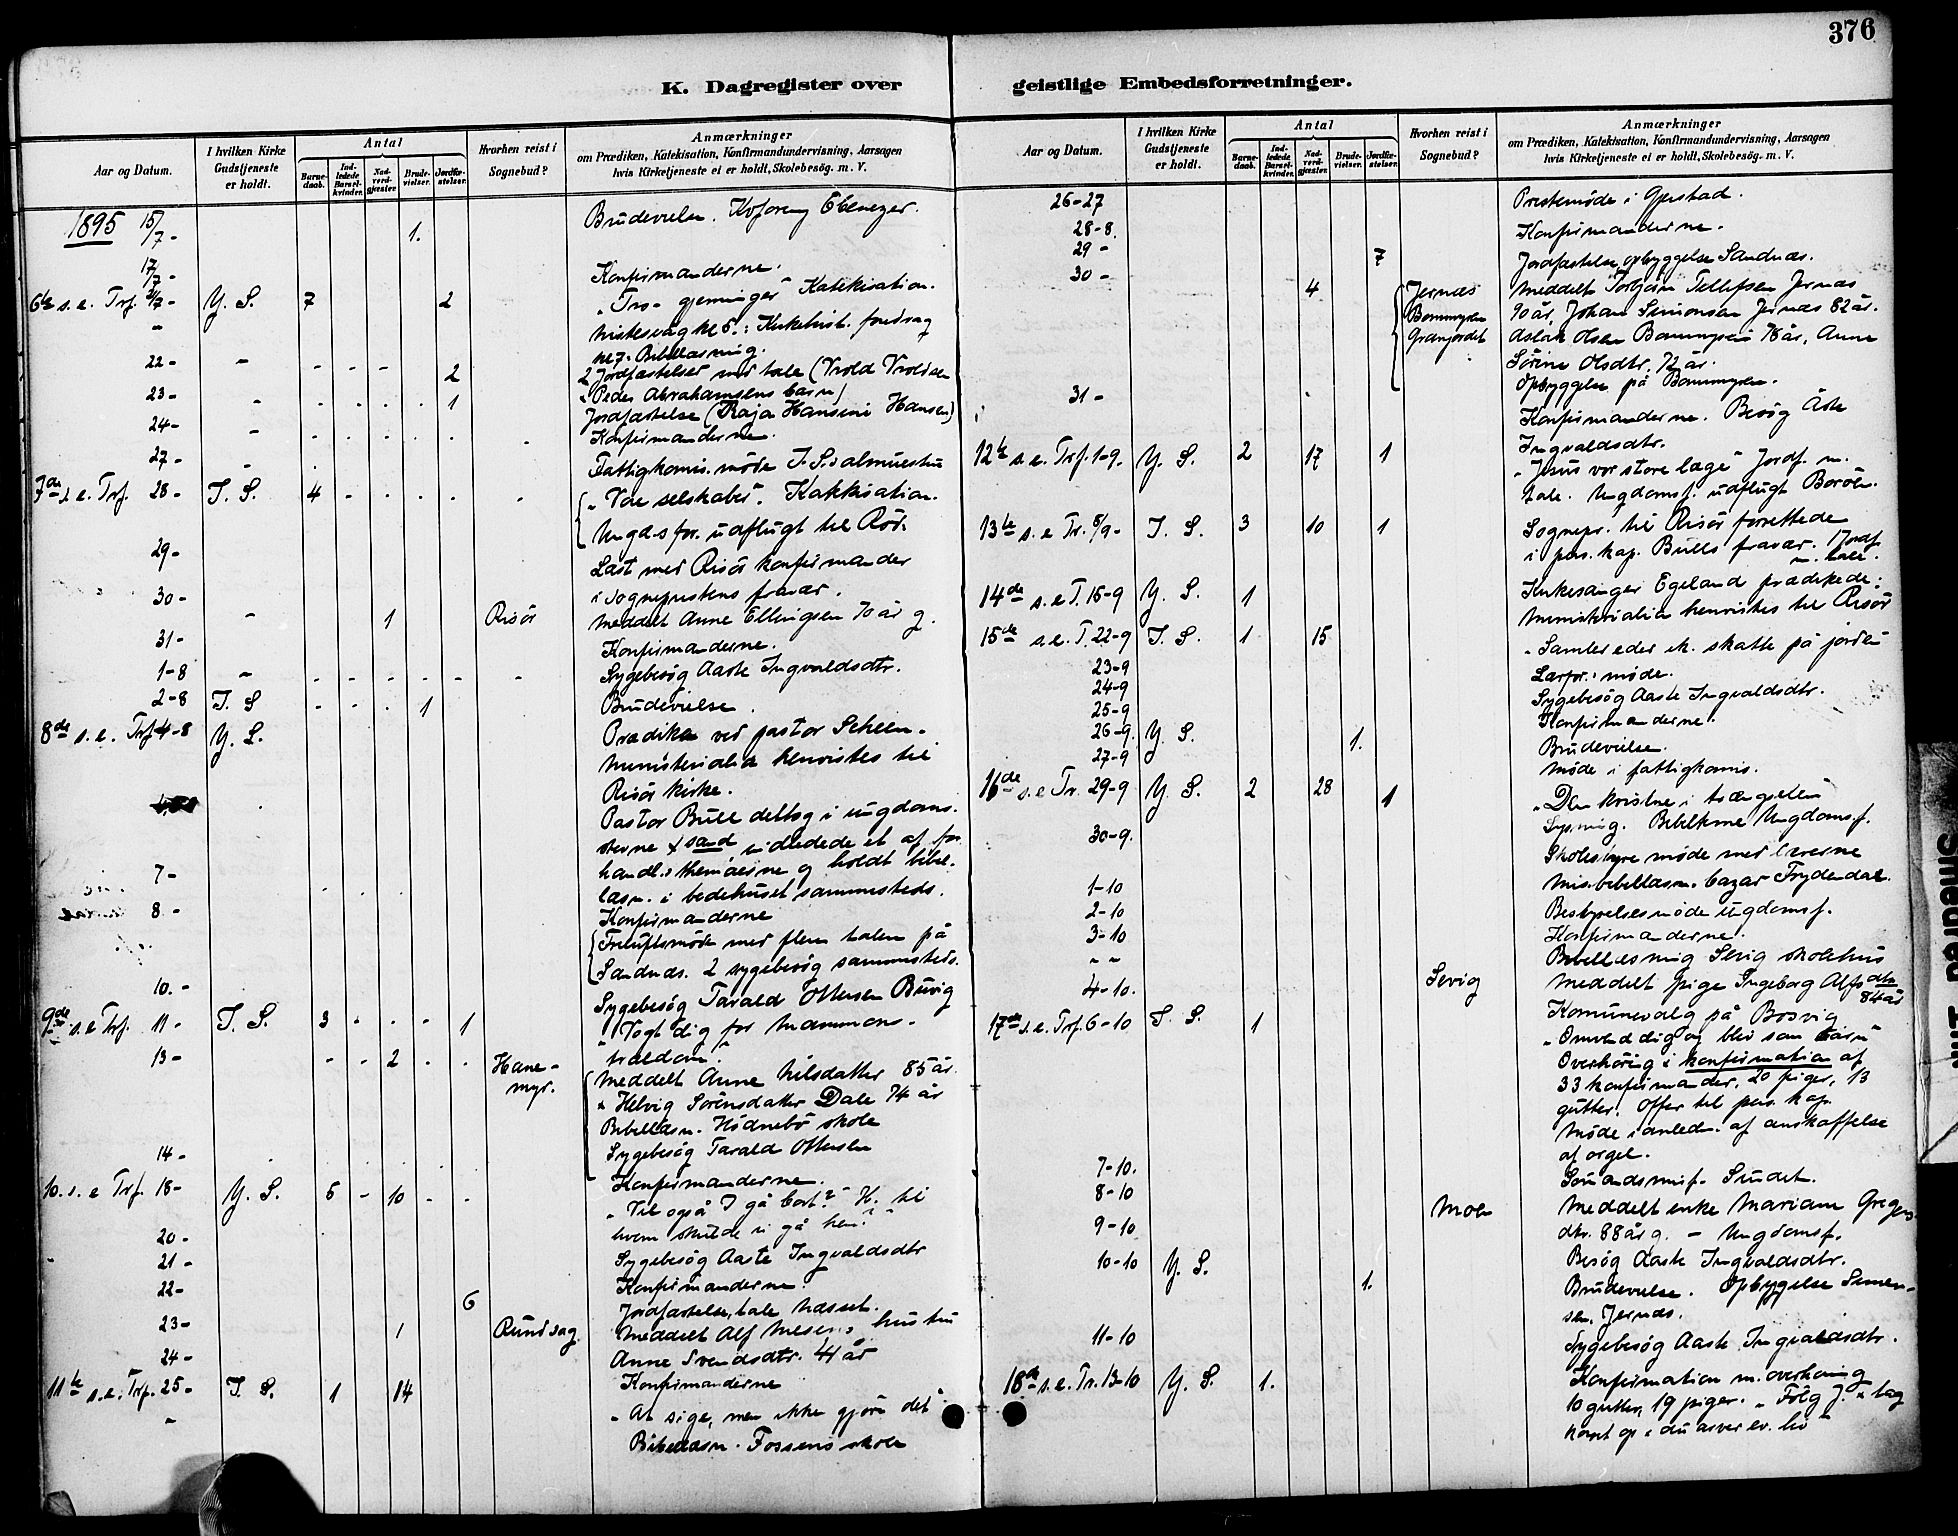 376
K. Dagregister over geistlige Embedsforretninger.
Aar og Datum.
I hvilken Kirke Gudstjeneste er holdt.
Antal
Barnedaab.
Indledede Barselkvinder.
Nadverdgjester
Brudevielser.
Jordfæstelser.
Hvorhen reist i Sognebud?
Anmærkninger
om Prædiken, Katekisation, Konfirmandundervisning, Aarsagen
hvis Kirketjeneste ei er holdt, Skolebesög. m. V.
1895 15/7- 1. Brudevielse. Ebenezer.
17/7- Konfirmanderne.
6te s. e. Trf. 21/7- Y. S. 7 2 "Tro- gjerninger" Katekisation.
" kl 5.: Kirkehist. foredrag
kl 7. Bibellæsning.
22- " - - - 2 2 Jordfæstelser med tale (Vrold Vroldsen
" Peder Abrahamsens barn)
23- " 1 Jordfæstelse (Raja Hansine Hansen)
24- " Konfirmanderne.
27- - Fattigkomis. møde I. S. almuestue
7de s. e. Trf. 28- I. S. 4 "Vore selskaber". Katekisation.
Ungds for. udflugt til
29- Læst med Risör konfirmander
i sogneprestens fravær.
30- " 1 Risör Meddelt Anne Ellingsen 70 år g.
31- Konfirmanderne.
1-8 " Sygebesøg Aaste Ingvaldsdtr.
2-8 I. S 1 Brudevielse.
8de s. e. Trf 4-8 Y. S. Prædiken ved pastor Scheen.
Ministerialia henvistes til
Risör kirke.
Pastor Bull deltog i ungdoms-
stevne sand indledede et af for
handl. themaerne og holdt bibel.
læsn. i bedehuset sammesteds.
7- Konfirmanderne
8.- Friluftsmøde med flere talere på
Sandnæs. 2 sygebesøg sammesteds.
10.- Sygebesøg Tarald Ottersen Buvig
9de s. e Trf. 11- I. S. 3 1 "Vogt dig for mammons-
trældom".
13- 2 Hanemyr. Meddelt Anne Nilsdatter 85 år.
" Helvig Sörensdatter Dale 74 år
Bibellæsn. Hödnebö skole
14- Sygebesøg Tarald Ottersen
Konfirmanderne.
10. s. e Trf. 18- Y. S. 5 10 "Vil også I gå bort?" H. til
hvem skulde vi gå hen?"
20- Sygebesøg Aaste Ingvaldsdtr
21- Konfirmanderne.
22- 6 Jordfæstelse, tale Næsset.
23- 1 Rundsag. Meddelt Alf hustru
Anne Svendsdtr. 41 år
24- Konfirmanderne
11te s. e. Trf. 25- I. S. 1 14 "At sige, men ikke gjöre det"
" Bibellæsn. Fossens skole
Aar og Datum.
I hvilken Kirke Gudstjeneste er holdt.
Antal
Barnedaab.
Indledede Barselkvinder.
Nadverdgjester
Brudevielser.
Jordfæstelser.
Hvorhen reist i Sognebud?
Anmærkninger
om Prædiken, Katekisation, Konfirmandundervisning, Aarsagen
hvis Kirketjeneste ei er holdt, Skolebesög. m. V.
26-27 Prestemøde i Gjerstad.
28-8. Konfirmanderne.
29- 7 Jordfæstelse, opbyggelse Sandnæs.
30- 4 Jernæs Meddelt Torbjörn Tellefsen Jernæs
Bommyren 90 år, Johan Simonsen Jernæs 82 år.
Granjordet Aslak Olsen Bommyren 78 år, Anne
Sörine Olsdtr. 72 år.
Opbyggelse på Bommyren.
31- Konfirmanderne. Besög Aste
Ingvaldsdtr.
12te s. e. Trf. 1-9. Y. S. 2 17 1 "Jesus vor store læge" Jordf. m.
tale. Ungdomsf. udflugt Boröen.
13de s. e Tr. 8/9- I. S. 3 10 1 Sognepr. til Risör forrettede
i pers. kap. Bulls fravær. 1 Jordf m. tale.
14de s. e T. 15-9 Y. S. 1 Kirkesanger Egeland prædikede;
Ministerialia henvistes til Risör
15de s. e. T. 22-9 I. S. 1 15 "Samler eder ik. skatte på jorden"
23-9 møde.
24-9 Sygebesøg Aaste Ingvaldsdtr.
25-9 Konfirmanderne.
26-9. Y. S. 1. Brudevielse.
27-9 Møde i fattigkomis.
16de s. e Tr. 29-9 Y. S. 2 28 1 "Den kristne i trængselen"
Lysning. Bibeltime Ungdomsf.
30-9. Skolestyremøde med lærerne
Mis. bibellæsn. bazar Frydendal.
1-10 Bestyrelsesmøde ungdomsf.
2-10 Konfirmanderne.
3-10 Bibellæsning Sevig skolehus
" "
4-10. Sevig Meddelt pige Ingeborg Alfsdtr 84 år
Komunevalg på Bosvig
17de s. e. Trf. 6-10 I. S. 1 "Omvend dig og bliv som barn"
Overhöring i konfirmation af
33 konfirmander, 20 piger, 13
gutter. Offer til pers. kap.
Møde i anledn. af anskaffelse
af orgel.
7-10. Sömandsmisf. Sundet.
8-10 Moen Meddelt enke Mariam Gregers
9-10 dtr. 88 år g. - Ungdomsf.
Besøg Aaste Ingvaldsdtr.
10-10 Y. S. 1. Brudevielse. Opbyggelse Simen-
sen, Jernæs.
11-10 Sygebesøg Aaste Ingvaldsdtr.
18de s. e. Tr. 13-10 Y. S. 1. Konfirmation m. overhöring
10 gutter, 19 piger. "Fölg J. " tag
korset op " du arver ev. liv"